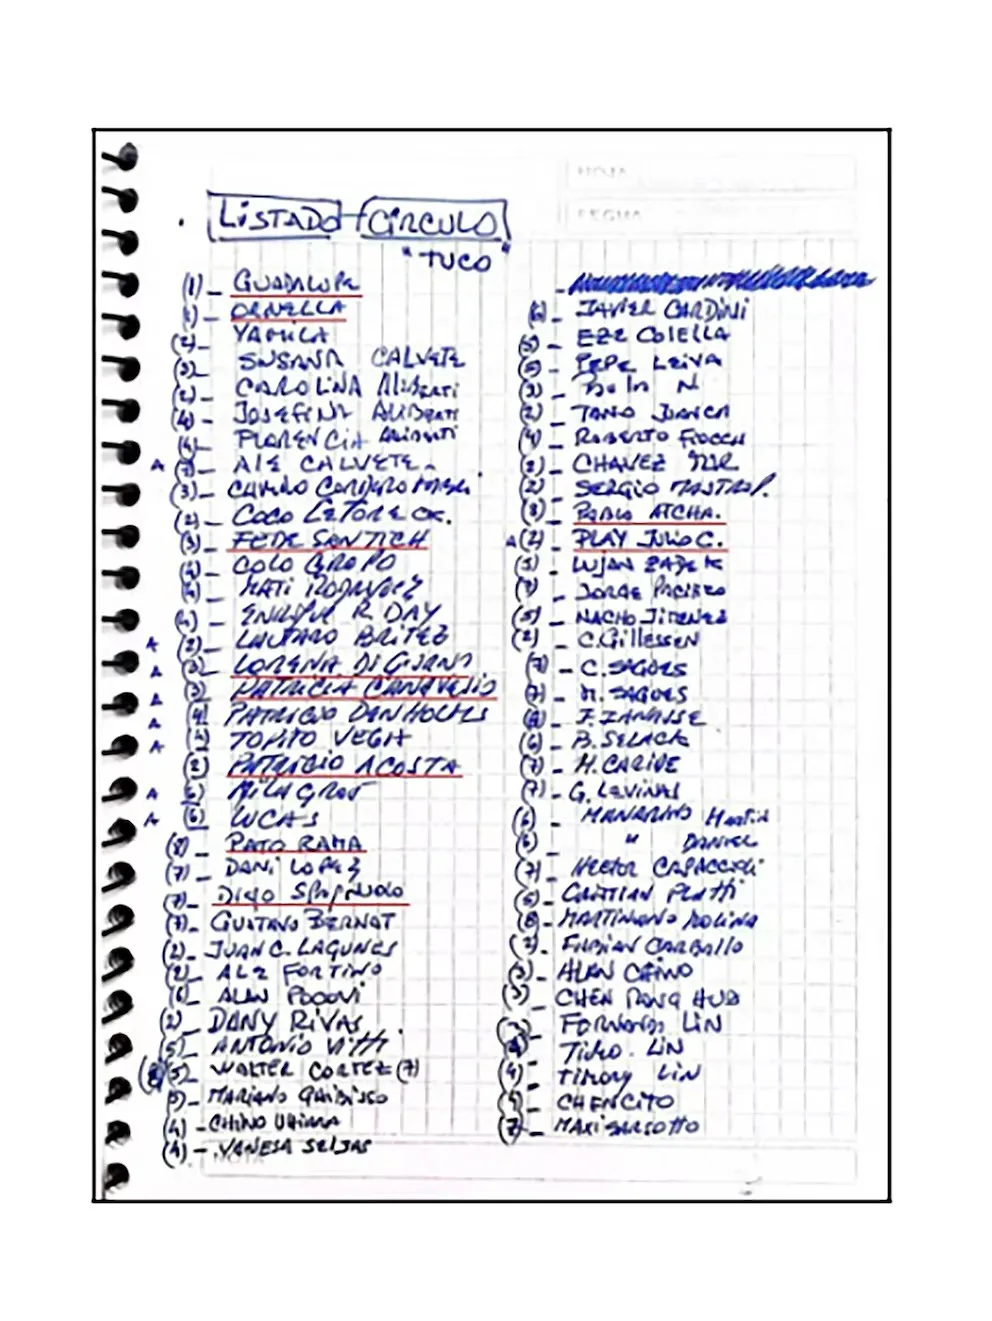 HOJA
FECHA
LISTADO CIRCULO
"TUCO"
(1)_ GUADALUPE
ORNELLA
YAMILA
SUSANA CALVETE
CAROLINA ALIBERTI
(4)- JOSEFINA ALIBERTI
FLORENCIA ALIBERTI
A ALE CALVETE.
(3)_ CAMILO CORDERO
(2)_ COCO
(3)_ FEDE SANTICH
COLO GROPO
MATI RODRIGUEZ
ENRIQUE R. DAY
LAUTARO BRITEZ
A LORENA DI GIUANO
A (3) PATRICIA CANAVESIO
A PATRICIO DANHOLMS
A TOMITO VEGA
A (2) PATRICIO ACOSTA
A MILAGROS
A (6) LUCAS
(8)_ PATO RAMA
(7)_ DANI LOPEZ
(7)_ DIEGO SPAGNUOLO
(7)_ GUSTAVO BERNAT
(2)_ JUAN C. LAGUNES
(2)_ ALE FORTINO
(6)_ ALAN POGOVI
(2)_ DANY RIVAS
(5)_ ANTONIO VITTI
(5)_ WALTER CORTEZ (7)
(5)_ MARIANO GAIBISSO
(4)_ CHINO
(4)_ VANESA SEIJAS
(6)_ JAVIER CARDINI
(5)_ EZE COLELLA
(5)_ PEPE LEIVA
(3)_ N
(2)_ TANO
(4)_ ROBERTO FIOCCA
(2)_ CHAVEZ
(2)_ SERGIO MASTROP.
(8)_ PABLO ATCHA.
A (2)_ PLAY JULIO C.
LUJAN
JORGE PACIFICO
(5)_ NACHO JIMENEZ
(2)_ C. Gillessen
(7)_ C. SAGUES
(7)_ M. SAGUES
F. ZANUSSE
(6)_ B. SELACK
(7)_ M. CARIDE
(7)_ G. LEVINAS
(6)_ MANARINO MARTIN
(6)_ " DANIEL
(7)_ HECTOR CAPACCIOLI
(6)_ CRISTIAN PLATTI
(8)_ MARTINIANO MOLINA
FABIAN CARBALLO
(3)_ ALAN CHINO
(3)_ CHEN
FORNANDO LIN
TIMO. LIN
(4)_ TIMOMY LIN
CHENCITO
(7)_ MAXI SARSOTTO
NOTA